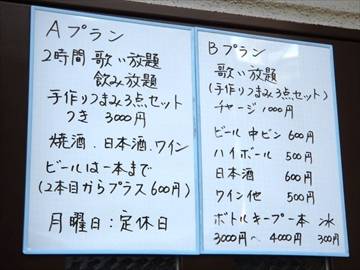 Aプラン
2時間 歌い放題
飲み放題
手作りつまみ3点セット
つき 3000円
焼酒.日本酒.ワイン
ビールは一本まで
(2本目からプラス600円)
月曜日:定休日
Bプラン
歌い放題
(手作りつまみ3点セット)
チャージ1000円
ビール 中ビン 600円
ハイボール 500円
日本酒 600円
ワイン他 500円
ボトルキープ一本 氷
3000円〜 4000円 300円